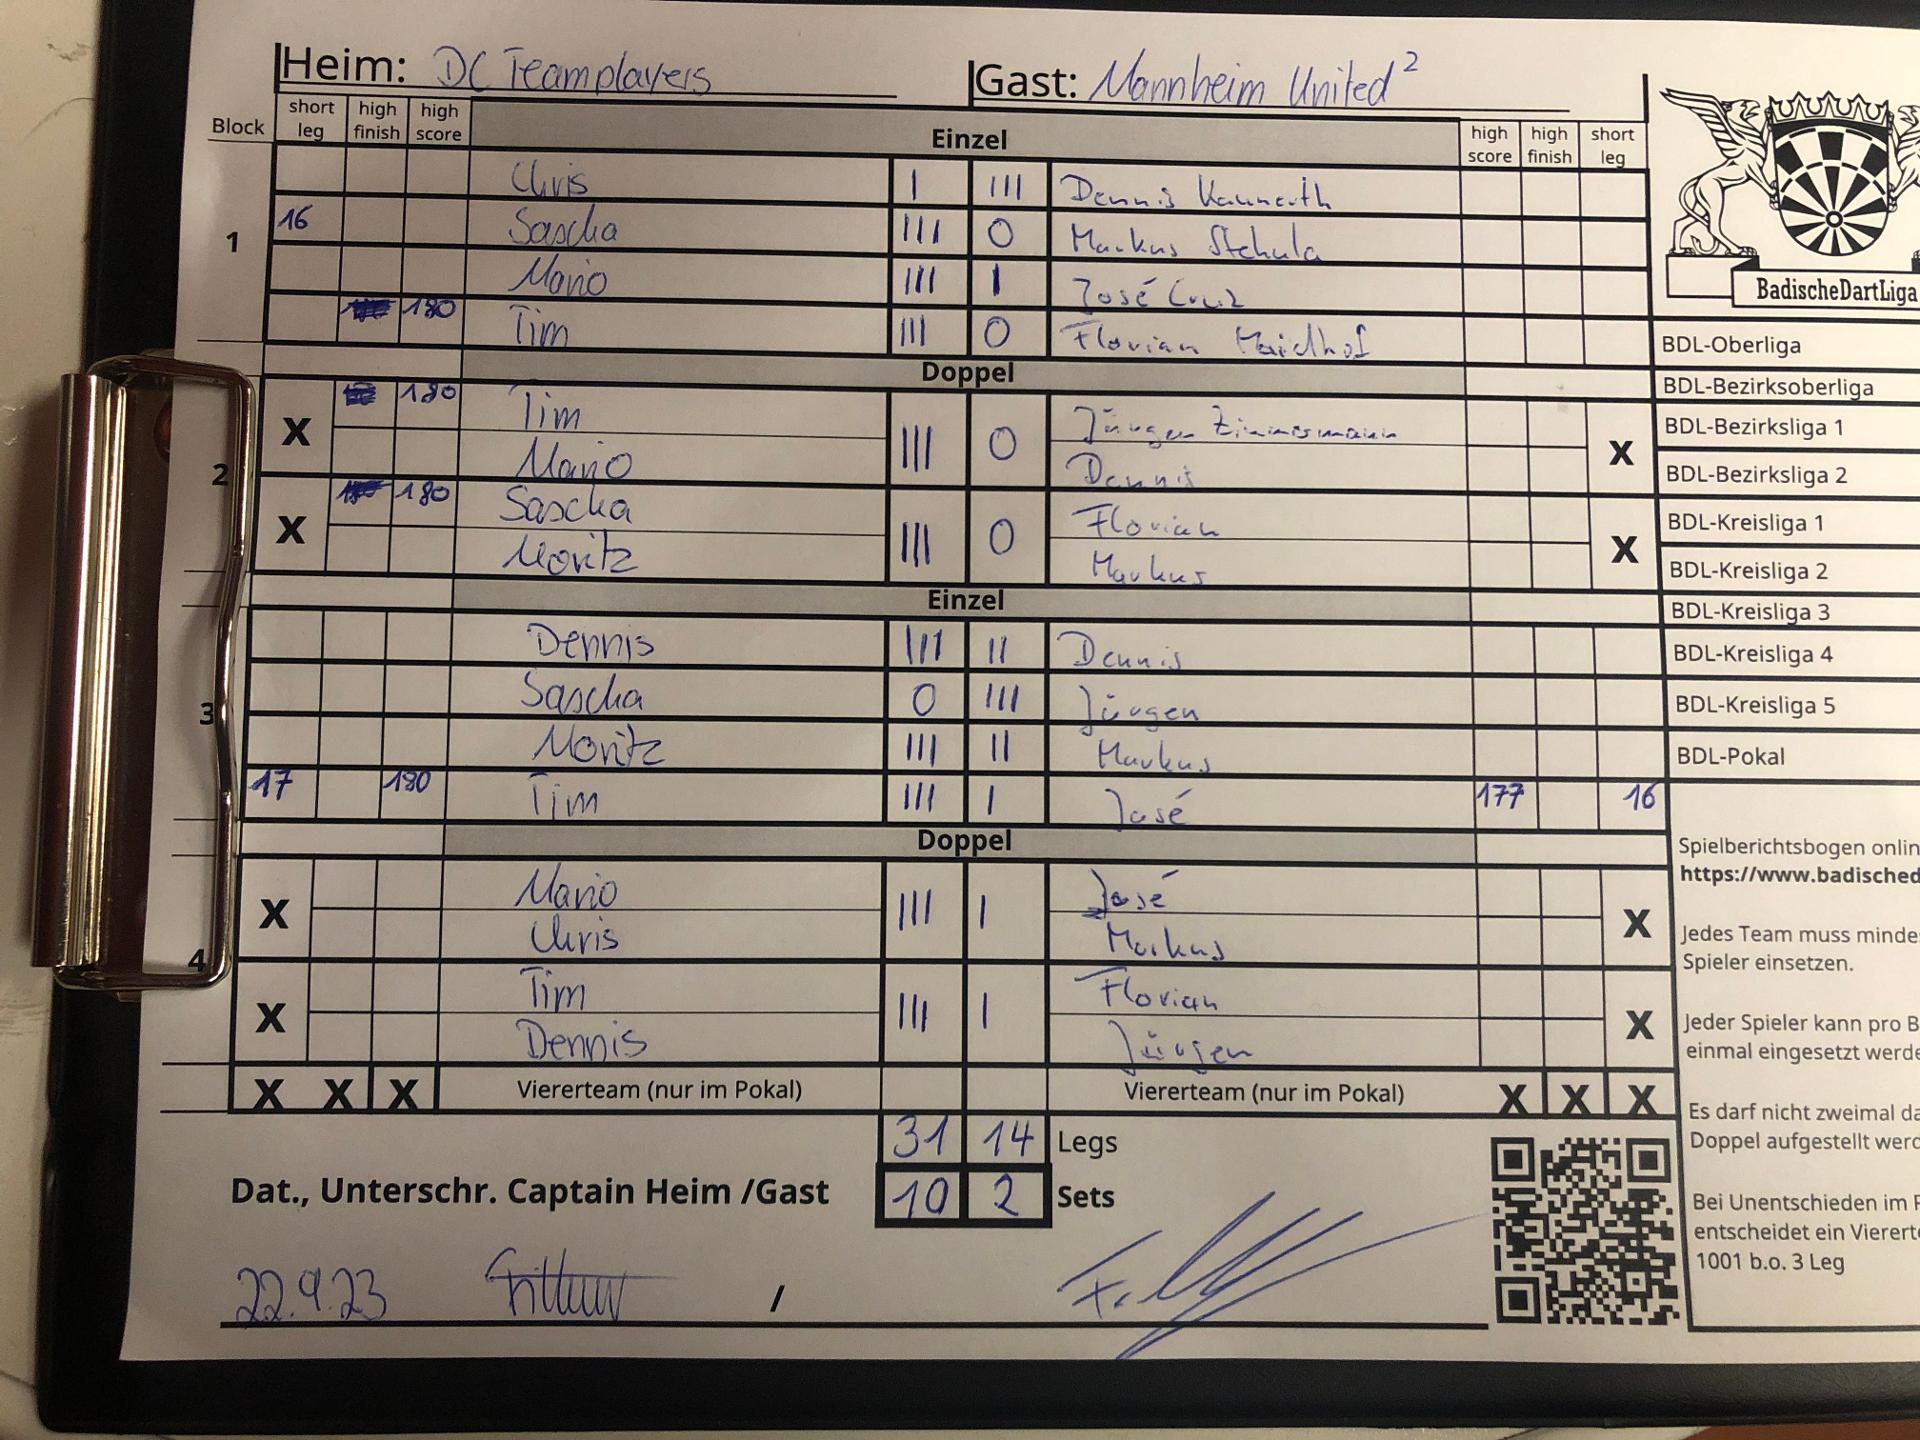 Heim: DC Teamplayers Gast: Mannheim United²
Block short leg high finish high score Einzel high score high finish short leg
1
Chris I III Dennis
16 Sascha III 0 Markus Stehula
Mario III I José Cruz
180 Tim III 0 Florian Maidhof
Doppel
2
X 180 Tim III 0 Jürgen Zimmermann X
Mario Dennis
X 180 Sascha III 0 Florian X
Moritz Markus
Einzel
3
Dennis III II Dennis
Sascha 0 III Jürgen
Moritz III II Markus
17 180 Tim III I José 177 16
Doppel
4
X Mario III I José X
Chris Markus
X Tim III I Florian X
Dennis Jürgen
X X X Viererteam (nur im Pokal) Viererteam (nur im Pokal) X X X
31 14 Legs
Dat., Unterschr. Captain Heim /Gast 10 2 Sets
22.9.23 /
BadischeDartLiga
BDL-Oberliga
BDL-Bezirksoberliga
BDL-Bezirksliga 1
BDL-Bezirksliga 2
BDL-Kreisliga 1
BDL-Kreisliga 2
BDL-Kreisliga 3
BDL-Kreisliga 4
BDL-Kreisliga 5
BDL-Pokal
Spielberichtsbogen onlin
https://www.badisched
Jedes Team muss minde
Spieler einsetzen.
Jeder Spieler kann pro B
einmal eingesetzt werde
Es darf nicht zweimal da
Doppel aufgestellt werd
Bei Unentschieden im P
entscheidet ein Vierert
1001 b.o. 3 Leg